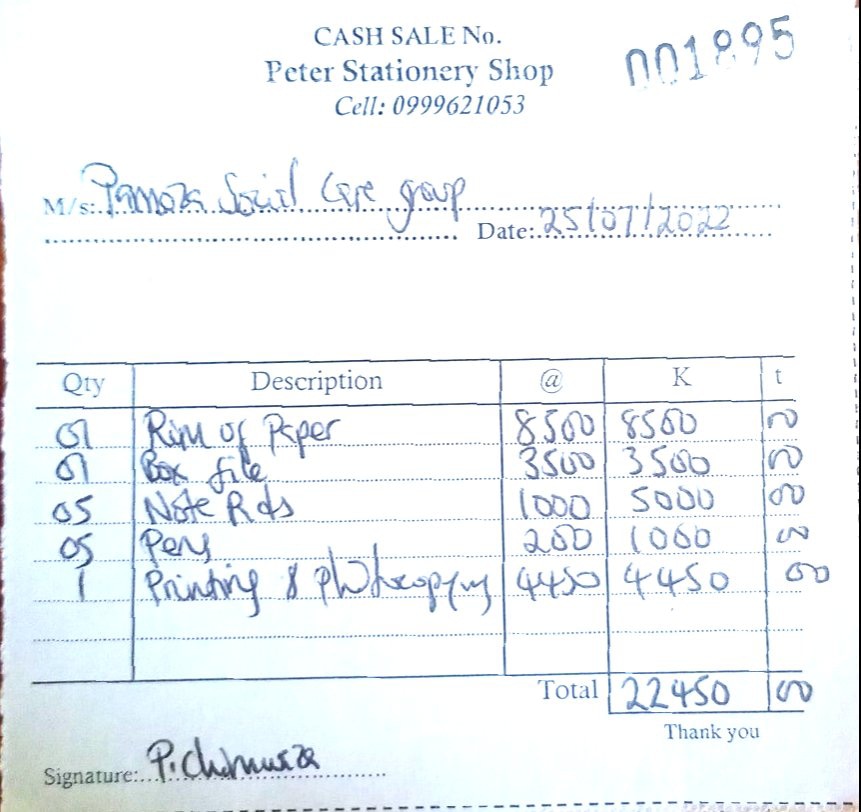 CASH SALE No.
001895
Peter Stationery Shop
Cell: 0999621053
M/s: Pamoza Social Care group
Date: 25/07/2022
Qty Description @ K t
01 Rim of Paper 8500 8500 00
01 Box file 3500 3500 00
05 Note Pads 1000 5000 00
05 Pens 200 1000 00
1 Printing & photocopying 4450 4450 00
Total 22450 00
Thank you
Signature: P.